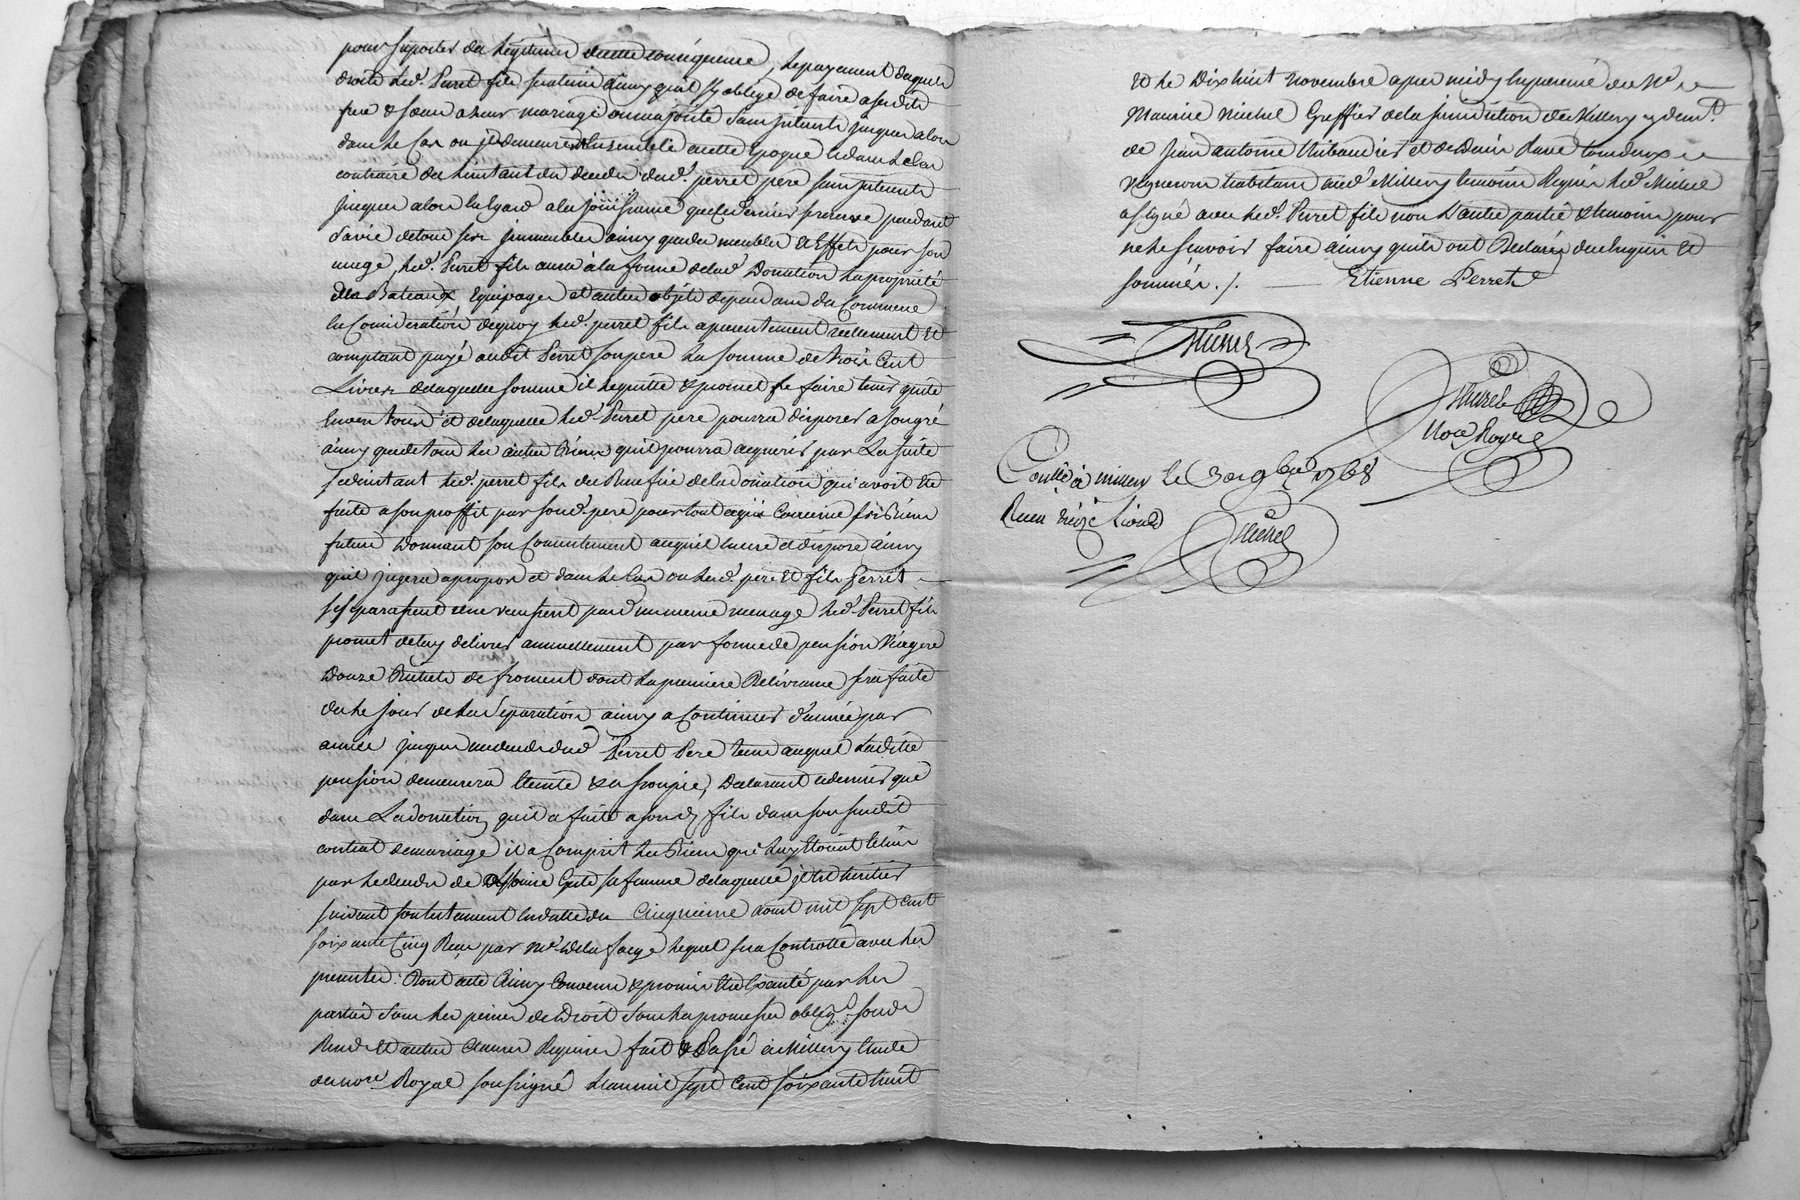 pour suporter les legitimes dicelle consequence, le payement desquels
droits led. Perret fils sera tenu ainsy quil sy oblige de faire a sesdits
frere & sœur a leur mariage ou majorité sans interets jusques alors
dans le cas ou ils demeurent ensemble a cette Epoque et dans le cas
contraire des linstant du deceds dud. perret pere sans interets
jusques alors Eu Egard a la jouissance que ce dernier se reserve pendant
sa vie de tous ses immeubles ainsy que des meubles & Effets pour son
usage, led. Perret fils aura a la forme de lad. Donation la proprieté
des Bateaux Equipages et autres objets dependans du Commerce
En Consideration dequoy led. perret fils a presentement reellement et
comptant payé audit Perret son pere la somme de trois Cent
Livres de laquelle somme il le quitte & promet le faire tenir quitte
Envers tous et de laquelle led. Perret pere pourra disposer a son gré
ainsy que de tous les autres Biens quil pourra acquerir par La suite
se desistant led. perret fils du Benefice de la donation qui avoit été
faite a son proffit par sond. pere pour tout ce qui Concerne ses Biens
futurs Donnant son Consentement a ce quil en use et dispose ainsy
quil jugera a propos et dans le Cas ou lesd. pere et fils Perret
se separassent et ne veussent pas d'un meme menage led. Perret fils
promet de luy delivrer annuellement par forme de pension Viagere
Douze Bichets de froment dont la premiere Delivrance sera faite
des le jour de la separation ainsy a Continuer d'année par
année jusques au deceds dud. Perret Pere tems auquel Ladite
pension demeurera Eteinte & assoupie, Declarant ce dernier que
dans La donation quil a faite a sond. fils dans son susdit
contrat de mariage il a Compris les Biens qui luy Etoient Echus
par le deceds de sa femme de laquelle il est heritier
suivant son testament En datte du Cinquieme aoust mil sept Cent
soixante Cinq Reçu par Me Delafarge lequel sera Controllé avec les
presentes. Dont acte Ainsy Convenu & promis Etre Executé par les
parties sous les peines de Droit sous les promesses oblig. soumis
Renon. et autres Clauses Requises fait & Passé a Millery Etude
du nore. Royal soussigné L'an mil sept Cent soixante huit
et le Dix huit novembre apres midy En presence de Me
Maurice Michel Greffier de la jurisdiction de Millery y demt.
de jean antoine Thibaudier et de Denis Rave tous deux
Vignerons habitans aud. Millery temoins Requis led. Michel
a signé avec led. Perret fils non L'autre partie & temoin pour
ne le scavoir faire ainsy quils ont Declarés de ce Enquis et
sommés ./. Etienne Perret
Michel
Michel
Nore Royal
Contlé a millery le 30e 9bre 1768
Reçu treize Sous
Michel